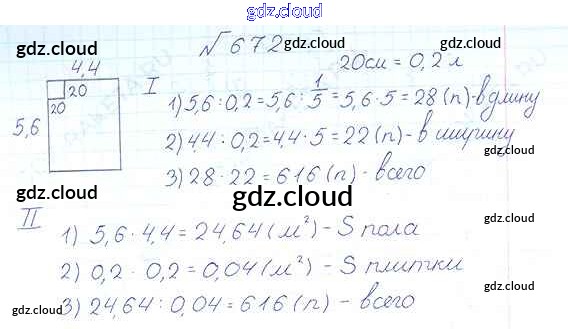 gdz.cloud
√672
gdz.cloud gdz.cloud gdz.cloud
4,4 20см = 0,2 л
20
20
5,6
I 1) 5,6 : 0,2 = 5,6 : 1/5 = 5,6 · 5 = 28 (п) - в длину
2) 4,4 : 0,2 = 4,4 · 5 = 22 (п) - в ширину
3) 28 · 22 = 616 (п) - всего
gdz.cloud gdz.cloud
gdz.cloud
II
1) 5,6 · 4,4 = 24,64 (м²) - S пола
gdz.cloud gdz.cloud
2) 0,2 · 0,2 = 0,04 (м²) - S плитки
3) 24,64 : 0,04 = 616 (п) - всего
gdz.cloud gdz.cloud
gdz.cloud